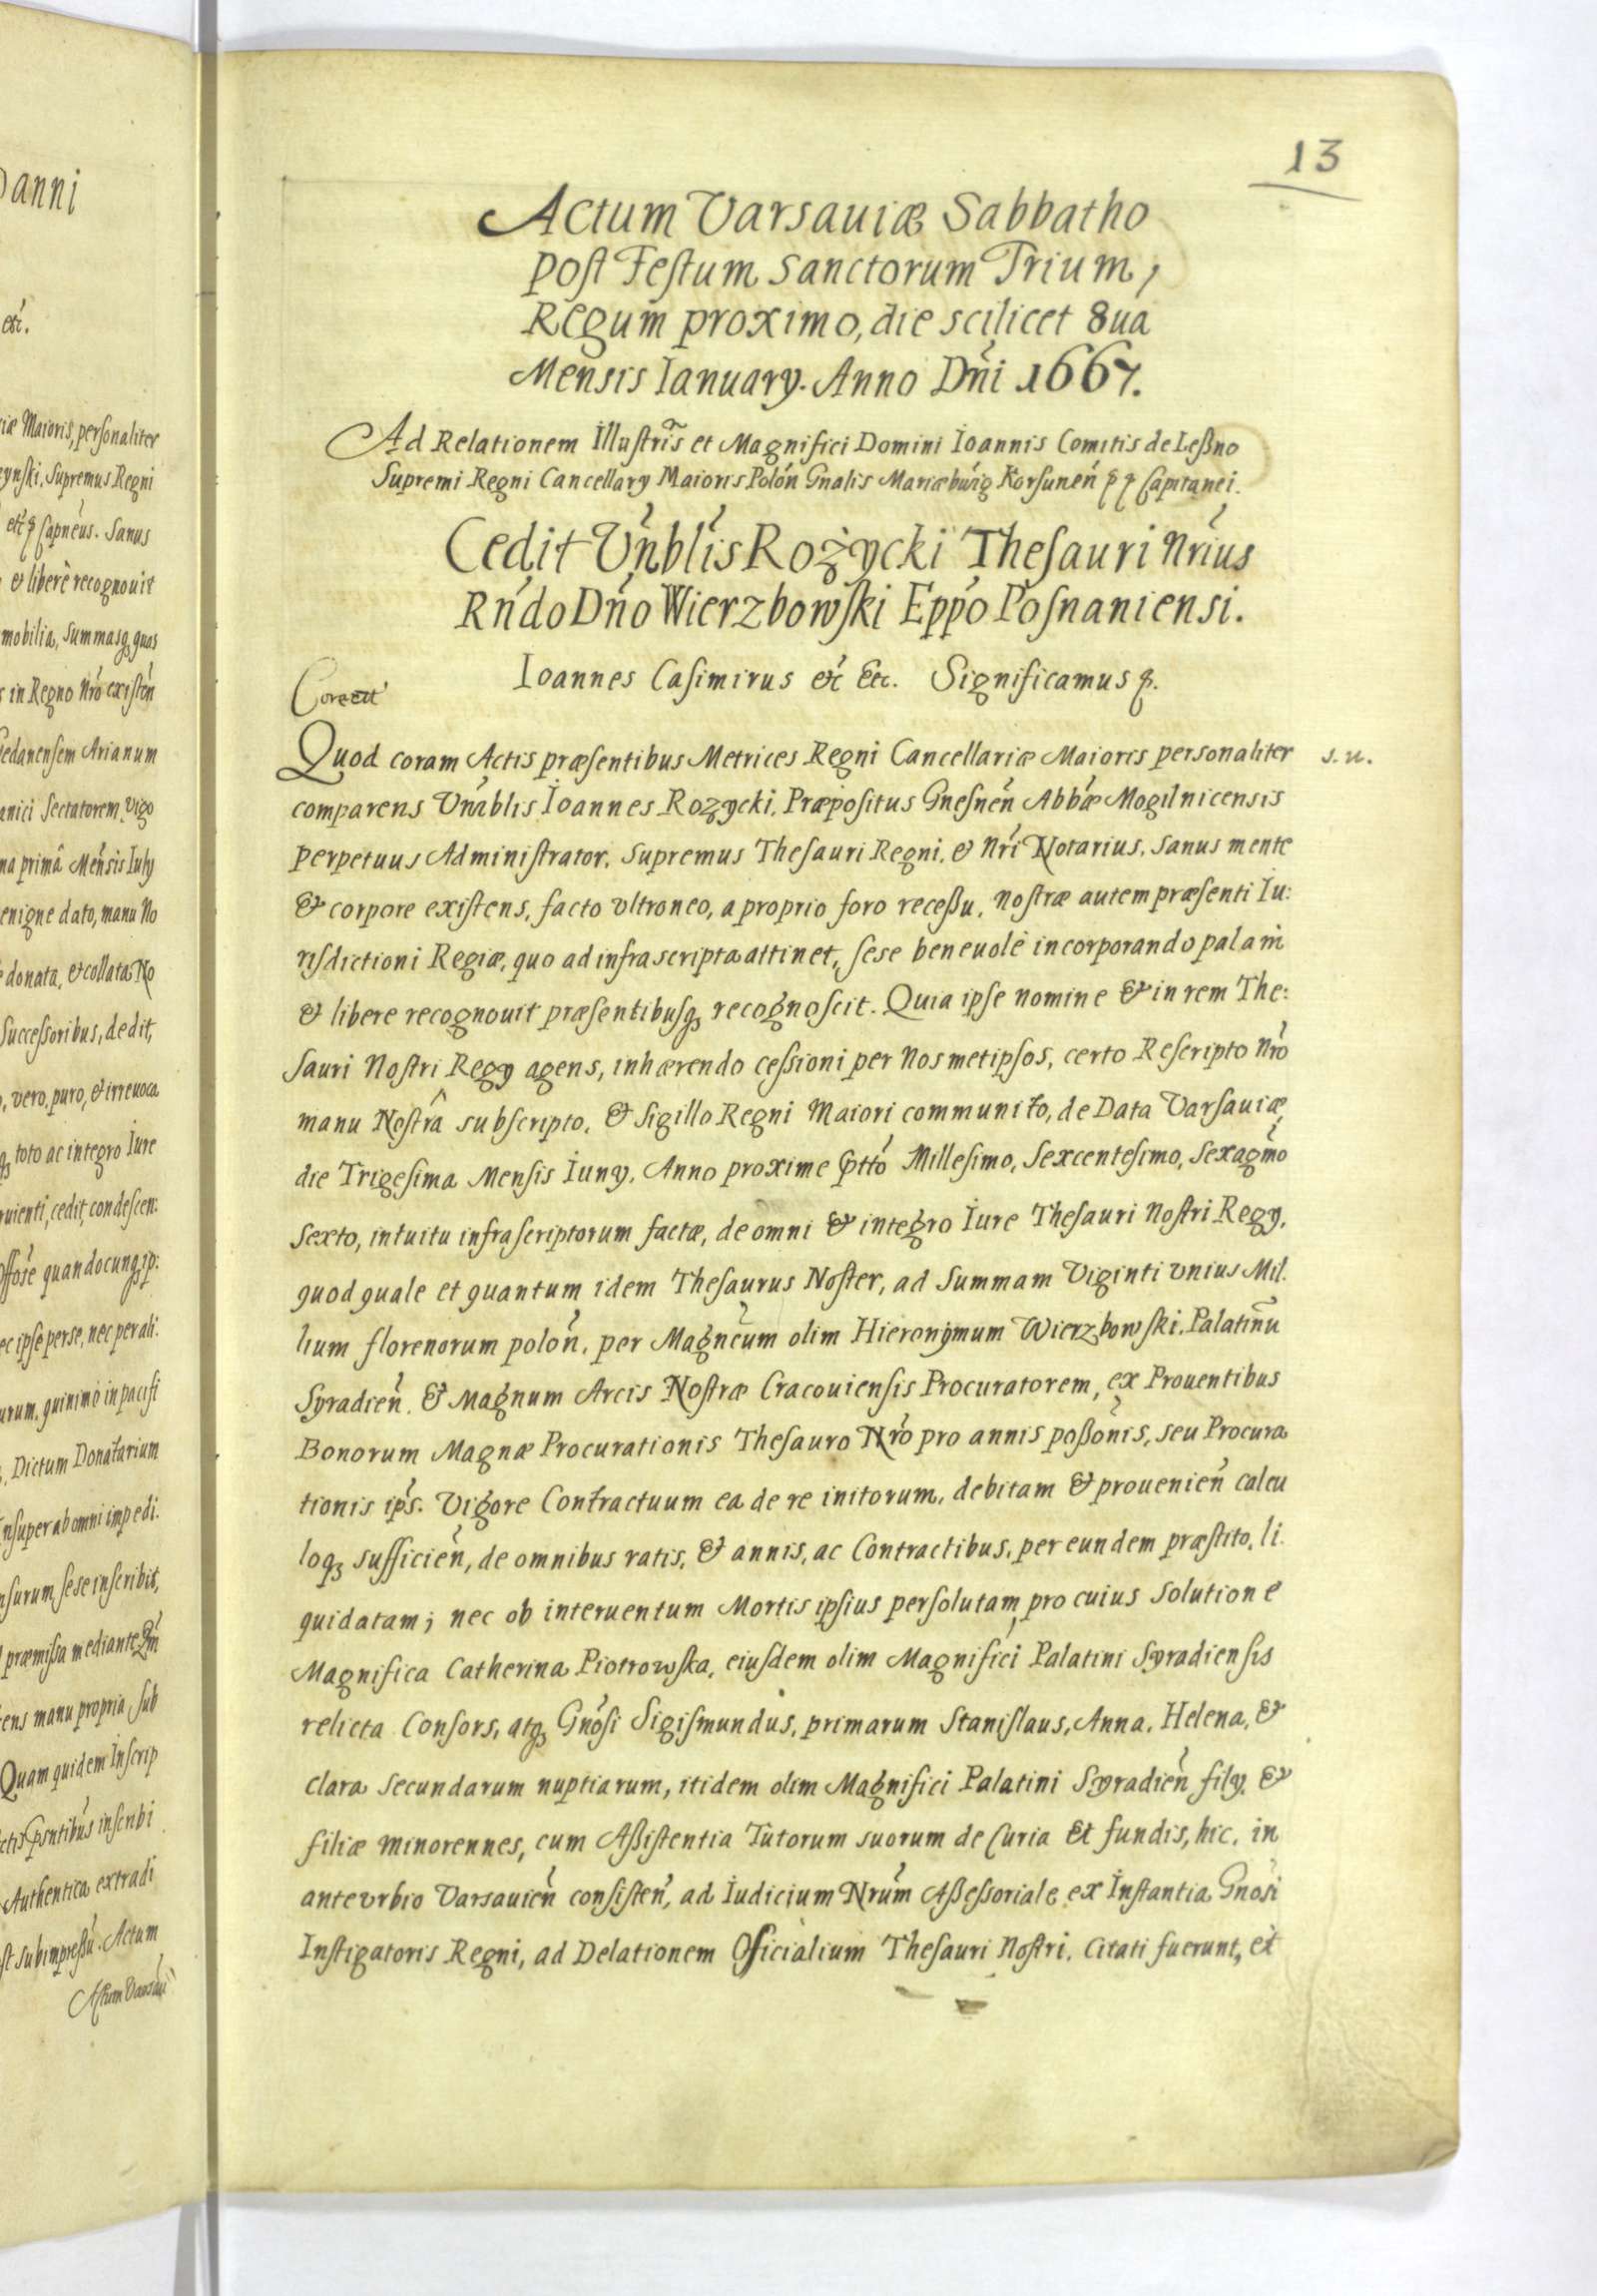 anni
etć.
iæ Maioris, personaliter
zynski, Supremus Regni
etć Capnéus. Sanus
& liberè recognouit
mobilia, Summasq, quas
in Regno Nró existén
Gedanensem Arianum
anici Sectatorem, vigo
ma primâ Ménsis Iuly
enigne dato, manu No
donata, et collata No
Successoribus, dedit,
vero, puro, & irreuoca
toto ac integro Iure
ruienti, cedit, condescen:
quandocunq, ip:
ec ipse per se, nec per ali:
urum, quinimò in pacifi
Dictum Donatarium
Insuper ab omni impedi:
nsurum sese inscribit,
præmissa mediante
ens manu propria sub
Quam quidem Inscrip
ctis psntibús inscribi
Authentica extradi
st subimpressú. Actum
Actum Varsáui
13
Actum Varsauiæ Sabbatho
post Festum Sanctorum Trium,
Regum proximo, die scilicet 8ua
Mensis Ianuary. Anno Dńi 1667.
Ad Relationem Illustris et Magnifici Domini Ioannis Comitis de Leßno
Supremi Regni Cancellary Maioris Polón Gnalis Mariæbúrg Korsunén p p Capitanei.
Cedit Vńblis Rożycki Thesauri Nrius
Rńdo Dńo Wierzbowski Eppó Posnaniensi.
Ioannes Casimirus etć Etc. Significamus p.
Correct
Quod coram Actis præsentibus Metrices Regni Cancellariæ Maioris personaliter
s. n.
comparens Vnáblis Ioannes Rozycki, Præpositus Gnesnén Abbáæ Mogilnicensis
perpetuus Administrator, Supremus Thesauri Regni, & Nrí Notarius, Sanus mente
& corpore existens, facto vltroneo, a proprio foro receßu, nostræ autem præsenti Iu:
risdictioni Regiæ, quo ad infrascripta attinet, sese beneuolè incorporando palam
& libere recognouit præsentibusq, recognoscit. Quia ipse nomine & in rem The:
sauri Nostri Regy agens, inhærendo cessioni per Nosmetipsos, certo Rescripto Nró
manu Nostrâ subscripto, & Sigillo Regni Maiori communito, de Data Varsauiæ,
die Trigesima Mensis Iuny, Anno proxime pttó Millesimo, Sexcentesimo, Sexagmó
Sexto, intuitu infrascriptorum factæ, de omni & integro Iure Thesauri Nostri Regy,
quod quale et quantum idem Thesaurus Noster, ad Summam Viginti vnius Mil.
lium florenorum polón, per Magnéum olim Hieronymum Wierzbowski, Palatinú
Syradién, & Magnum Arcis Nostræ Cracouiensis Procuratorem, ex Prouentibus
Bonorum Magnæ Procurationis Thesauro Nró pro annis poßónis, seu Procura
tionis ipś. Vigore Contractuum ea de re initorum, debitam & prouenién calcu
loq, sufficién, de omnibus ratis, & annis, ac Contractibus, per eundem præstito, li.
quidatam; nec ob interuentum Mortis ipsius persolutam, pro cuius solutione
Magnifica Catherina Piotrowska, eiusdem olim Magnifici Palatini Syradiensis
relicta Consors, atq, Gnósi Sigismundus, primarum Stanislaus, Anna, Helena, &
clara secundarum nuptiarum, itidem olim Magnifici Palatini Syradién fily, &
filiæ minorennes, cum Aßistentia Tutorum suorum de Curia Et fundis, hic, in
antevrbio Varsauién consistén, ad Iudicium Nrúm Aßessoriale ex Instantia Gnósi
Instigatoris Regni, ad Delationem Oficialium Thesauri Nostri, Citati fuerunt, et